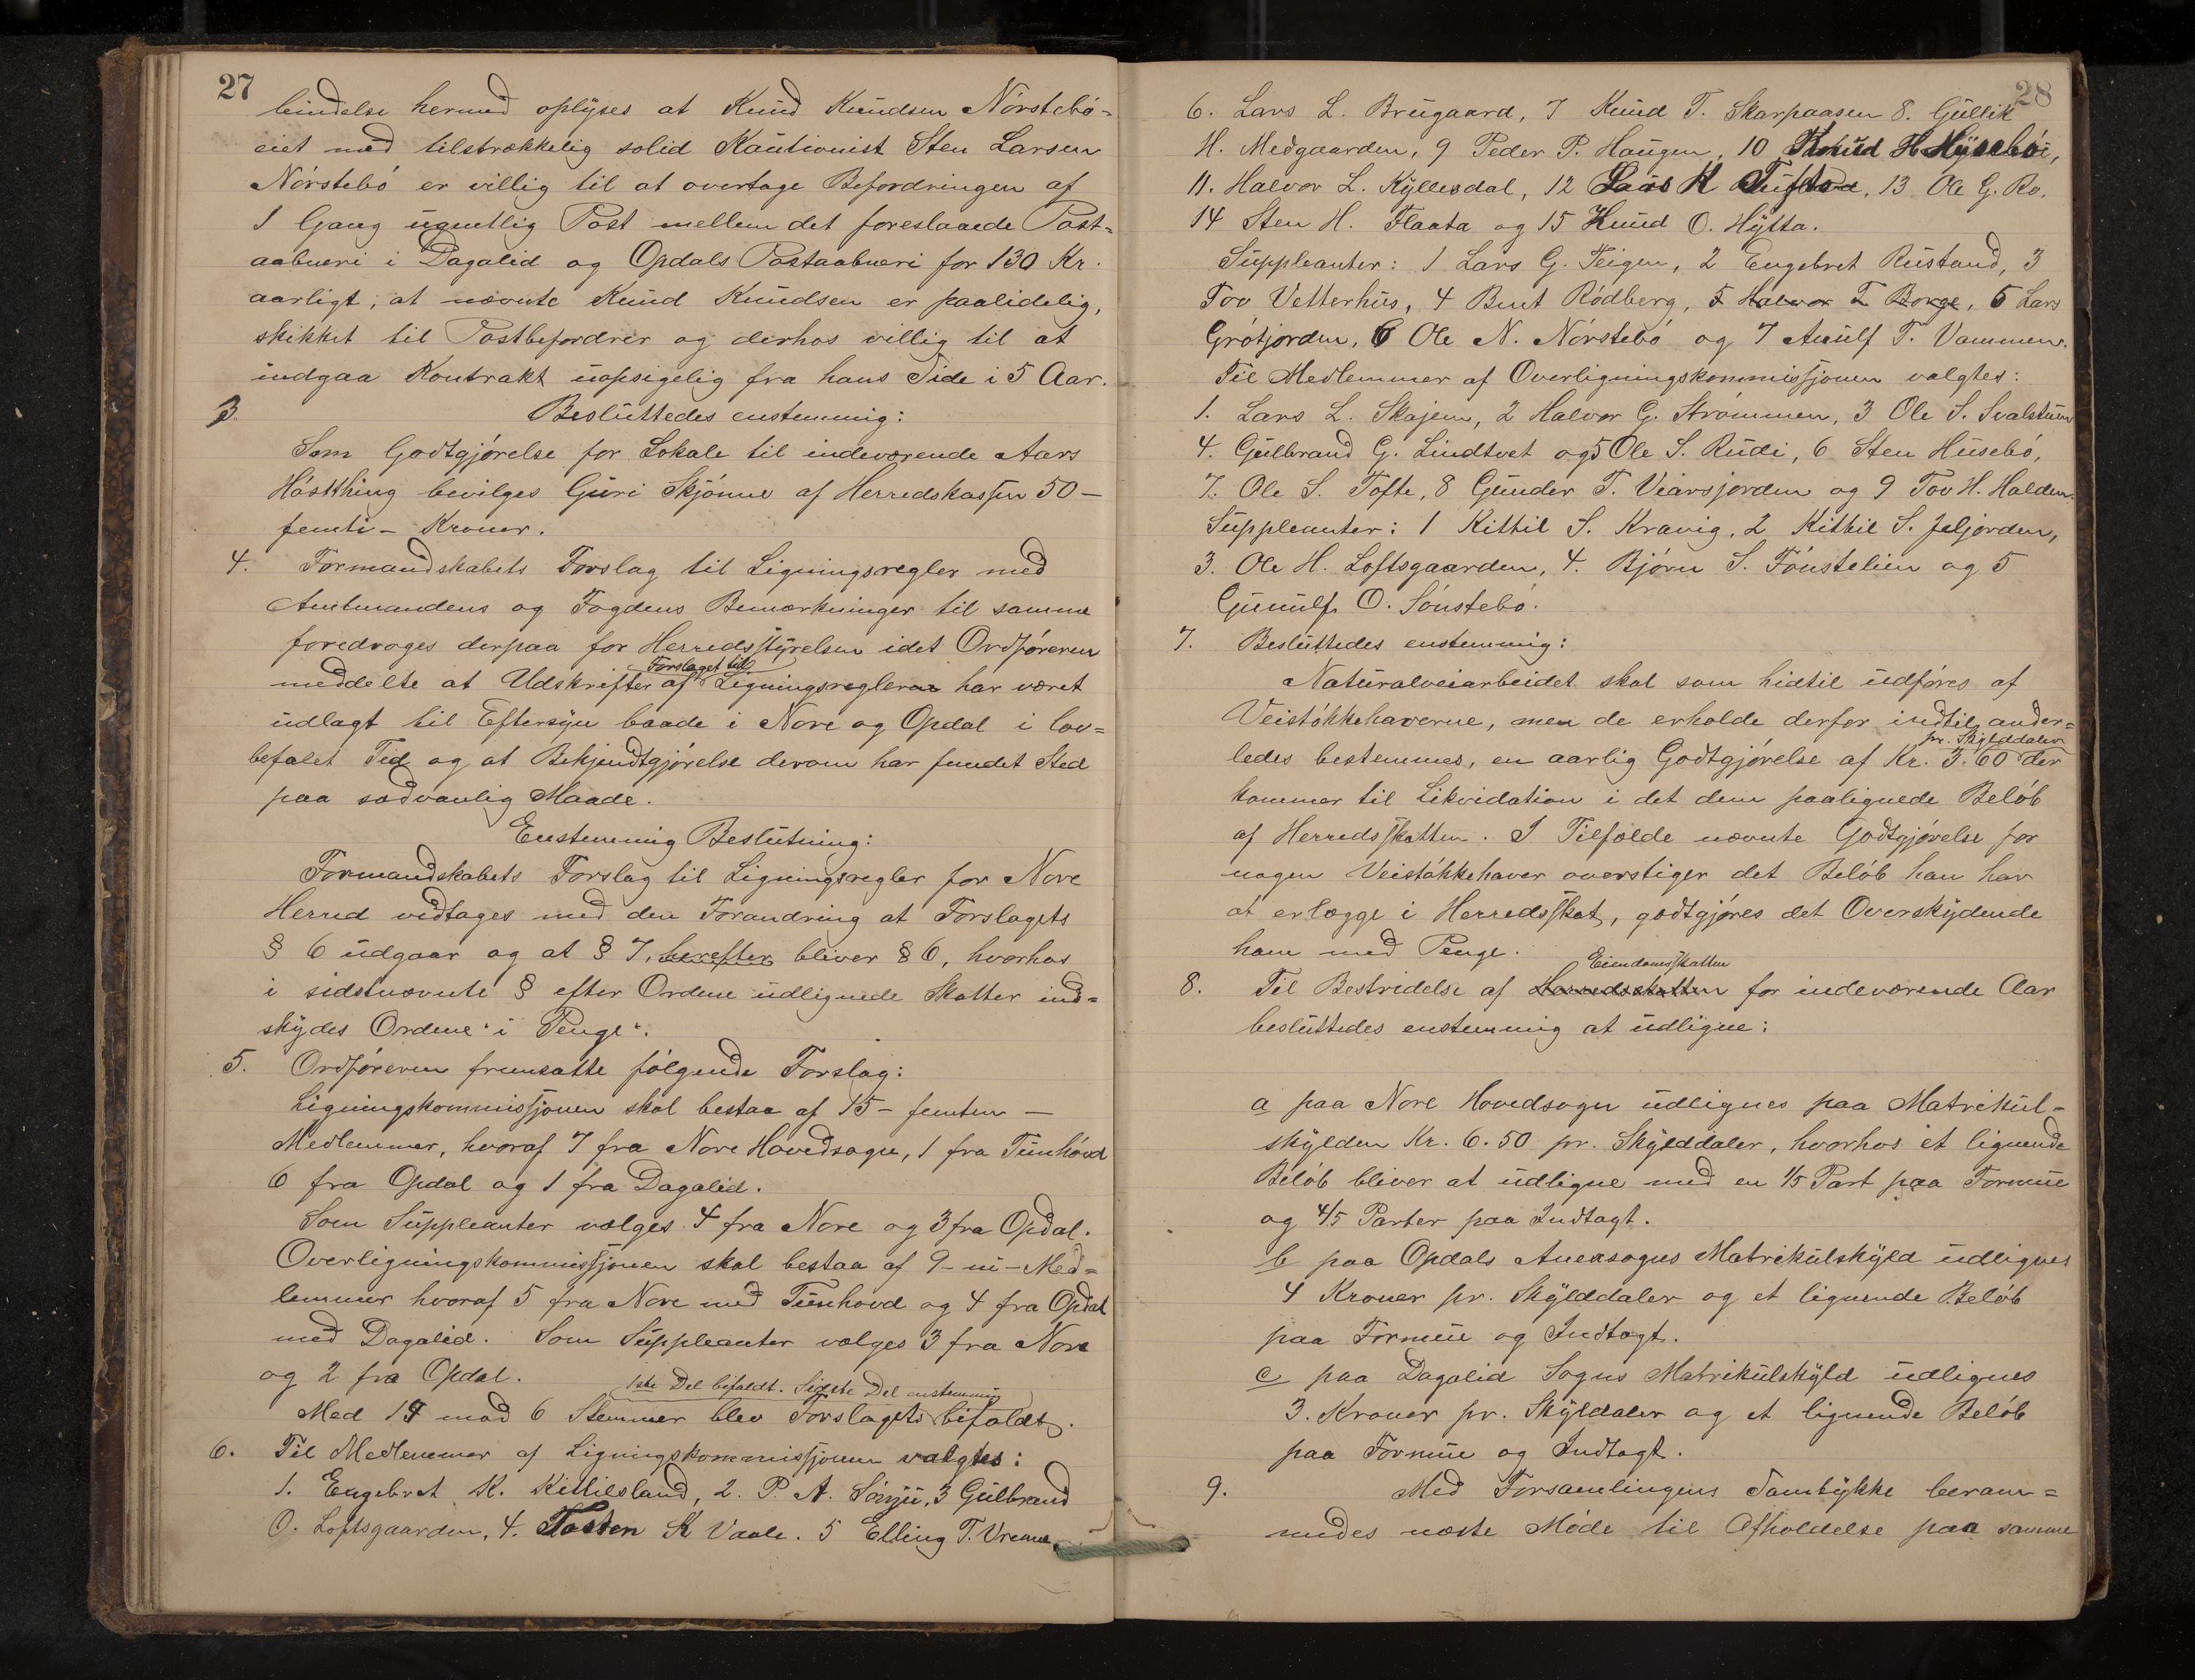 27
bindelse hermed oplyses at Knud Knudsen Nórstebó-
eiet med tilstrækkelig solid Kautionist Sten Larsen
Nórstebó er villig til at overtage Befordringen af
1 Gang ugentlig Post mellem det foreslaaede Post-
aabneri i Dagalid og Opdals Postaabneri for 130 Kr.
aarligt, at nævnte Knud Knudsen er paalidelig,
skikket til Postbefordrer og derhos villig til at
indgaa Kontrakt uopsigelig fra hans Side i 5 Aar.
3. Besluttedes enstemmig:
Som Godtgjórelse for Lokale til indeværende Aars
Hóstthing bevilges Guri Skjónne af Herredskassen 50 -
femti - Kroner.
4. Formandskabets Forslag til Ligningsregler med
Amtmandens og Fogdens Bemærkninger til samme
foredroges derpaa for Herredsstyrelsen idet Ordfóreren
Forslaget til
meddelte at Udskrifter af Ligningsreglerne har været
udlagt til Eftersyn baade i Nore og Opdal i lov=
befalet Tid og at Bekjendtgjórelse derom har fundet Sted
paa sædvanlig Maade.
Enstemmig Beslutning:
Formandskabets Forslag til Ligningsregler for Nore
Herred vedtages med den Forandring at Forslagets
§ 6 udgaar og at § 7, herefter bliver § 6, hvorhos
i sidstnævnte § efter Ordene udlignede Skatter ind=
skydes Ordene "i Penge".
5. Ordfóreren fremsatte fólgende Forslag:
Ligningskommissjonen skal bestaa af 15 - femten -
Medlemmer, hvoraf 7 fra Nore Hovedsogn, 1 fra Tunhóvd
6 fra Opdal og 1 fra Dagalid.
Som Suppleanter vælges 4 fra Nore og 3 fra Opdal.
Overligningskommissjonen skal bestaa af 9 - ni - Med=
lemmer hvoraf 5 fra Nore med Tunhovd og 4 fra Opdal
med Dagalid. Som Suppleanter vælges 3 fra Nore
og 2 fra Opdal.
1ste Del bifaldt. Sidste Del enstemmig
Med 14 mod 6 Stemmer blev Forslagets bifaldt.
6. Til Medlemmer af Ligningskommissjonen valgtes:
1. Engebret K. Kittilsland, 2. P. A. Sónju, 3 Gulbrand
O. Loftsgaarden, 4. Tosten K Vaale. 5 Elling T. Vrenne
28
6. Lars L. Brugaard, 7 Knud T. Skarpaasen 8. Gullik
H. Medgaarden, 9 Peder P. Haugen, 10 Knud H Húsebó,
11. Halvor L. Kyllesdal, 12 Lars K Tufto, 13 Ole G. Ro.
14 Sten H. Flaata og 15 Knud O. Hytta.
Suppleanter: 1 Lars G. Teigen, 2 Engebret Rustand, 3
Tov Vetterhus, 4 Bent Ródberg, 5 Halvor T Borge, 5 Lars
Grótjorden, 6 Ole N. Nórstebó og 7 Arnulf T. Vammen.
Til Medlemmer af Overligningskommissjonen valgtes:
1. Lars L. Skajem, 2 Halvor G. Strómmen, 3 Ole S. Svalstuen
4. Gulbrand G. Lindtvet og 5 Ole S. Rudi, 6 Sten Húsebó,
7. Ole S. Tofte, 8 Gunder T. Veiarsjorden og 9 Tov H. Halden.
Suppleanter: 1 Kittil S. Kravig, 2 Kittil S. Juljorden,
3. Ole H. Loftsgaarden, 4. Bjórn S. Fónstelien og 5
Gunulf O. Sónstebó.
7. Besluttedes enstemmig:
Naturalveiarbeidet skal som hidtil udfóres af
Veistókkehaverne, men de erholde derfor indtil ander=
pr. Skylddaler
ledes bestemmes, en aarlig Godtgjórelse af Kr. 3.60 der
kommer til Likvidation i det dem paalignede Belób
af Herredsskatten. I Tilfælde nævnte Godtgjórelse for
nogen Veistókkehaver overstiger det Belób han har
at erlægge i Herredsskat, godtgjóres det Overskydende
ham med Penge.
Eiendomsskatten
8. Til Bestridelse af Herredsskatten for indeværende Aar
besluttedes enstemmig at udligne:
a paa Nore Hovedsogn udlignes paa Matrikul-
skylden Kr. 6.50 pr. Skylddaler, hvorhos et lignende
Belób bliver at udligne med en 1/5 Part paa Formue
og 4/5 Parter paa Indtægt.
b paa Opdals Anexsogns Matrikulskyld udlignes
4 Kroner pr. Skylddaler og et lignende Belób
paa Formue og Indtægt.
c paa Dagalid Sogns Matrikulskyld udlignes
3. Kroner pr. Skyldaler og et lignende Belób
paa Formue og Indtægt.
9. Med Forsamlingens Samtykke beram=
medes næste Móde til Afholdelse paa samme